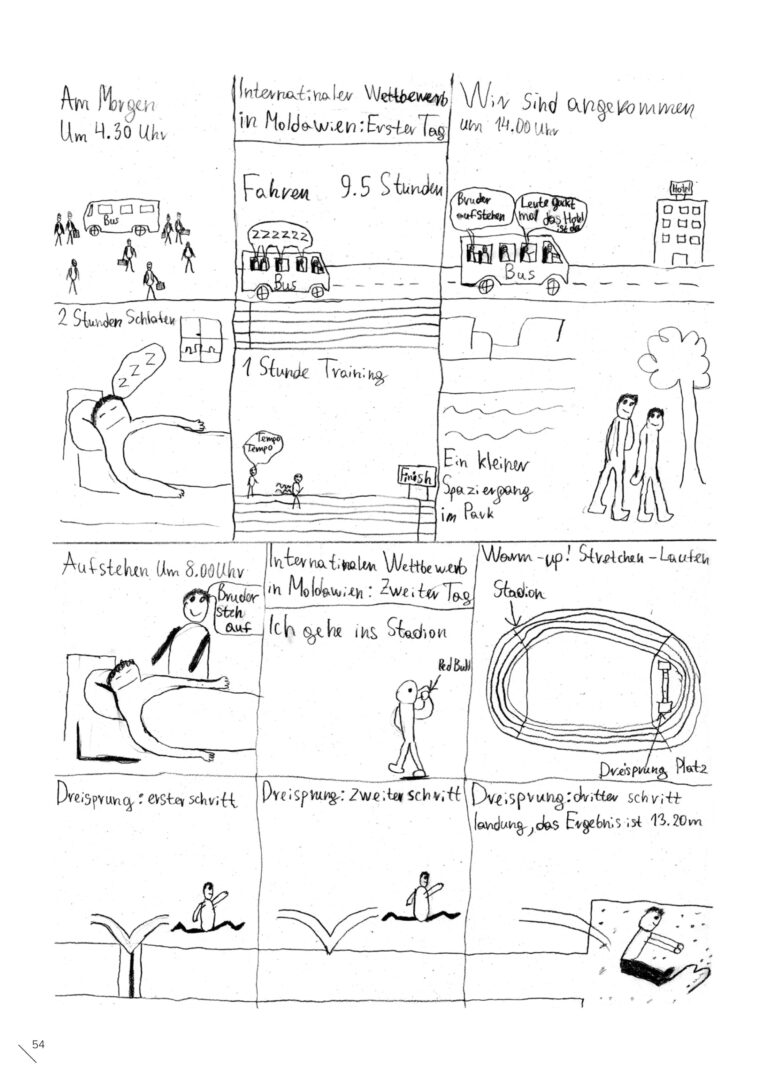 Am Morgen
Um 4.30 Uhr
Bus
Internatinaler Wettbewerb
in Moldawien: Erster Tag
Fahren 9.5 Stunden
ZZZZZZ
Bus
Wir sind angekommen
um 14.00 Uhr
Bruder
aufstehen
Leute guckt
mal das Hotel
ist da
Hotel
Bus
2 Stunden Schlafen
ZZZ
1 Stunde Training
Tempo
Tempo
Finish
Ein kleiner
Spaziergang
im Park
Aufstehen Um 8.00 Uhr
Bruder
steh
auf
Internatinalen Wettbewerb
in Moldawien: Zweiter Tag
Ich gehe ins Stadion
Red Bull
Warm-up! Stretchen-Laufen
Stadion
Dreisprung Platz
Dreisprung: erster schritt
Dreisprung: zweiter schritt
Dreisprung: dritter schritt
landung, das Ergebnis ist 13.20m
54